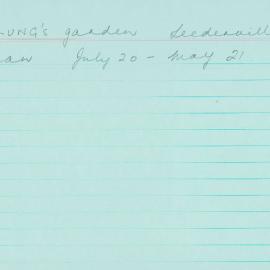 UNG's garden Leedervill
aw July 20 - May 21